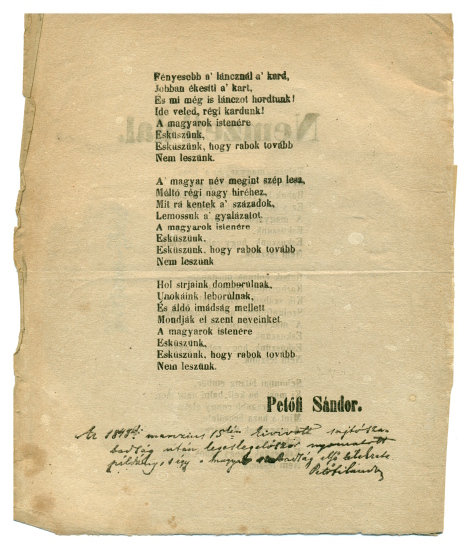 Fényesebb a' láncznál a' kard,
Jobban ékesíti a' kart,
És mi még is lánczot hordtunk!
Ide veled, régi kardunk!
A magyarok istenére
Esküszünk,
Esküszünk, hogy rabok tovább
Nem leszünk.
A' magyar név megint szép lesz,
Méltó régi nagy híréhez,
Mit rá kentek a' századok,
Lemossuk a' gyalázatot.
A magyarok istenére
Esküszünk,
Esküszünk, hogy rabok tovább
Nem leszünk
Hol sírjaink domborúlnak,
Unokáink leborúlnak,
És áldó imádság mellett
Mondják el szent neveinket
A magyarok istenére
Esküszünk,
Esküszünk, hogy rabok tovább
Nem leszünk.
Petőfi Sándor.
Az 1848diki marczius 15kén kivivott sajtósza-
badság után legeslegelőször nyomatott
példány, s így a magyar szabadság első lélekzete
Petőfi Sándor